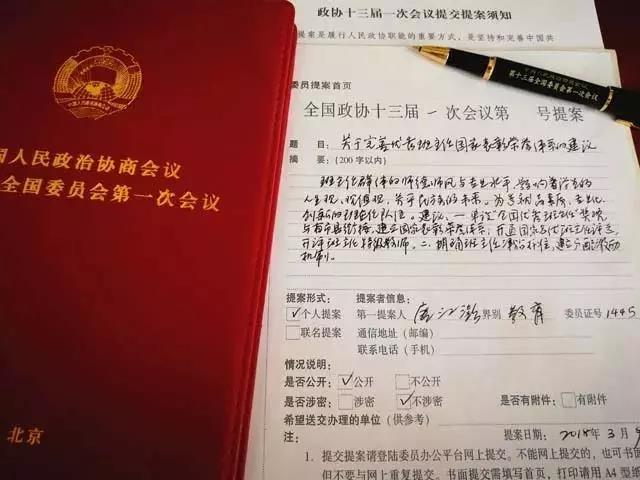 国人民政治协商会议
全国委员会第一次会议
北京
政协十三届一次会议提交提案须知
提案是履行人民政协职能的重要方式,是坚持和完善中国共
第十三届全国委员会第一次会议
委员提案首页
全国政协十三届 一 次会议第 号提案
题目: 关于完善优秀班主任国家表彰荣誉体系的建议
摘要: (200字以内)
班主任群体的师德师风与专业水平,影响着学生的
人生观、价值观,关乎民族的未来。为
创新的班主任队伍。建议:一、单设"全国优秀班主任"奖项,
与 建立国家表彰荣誉体系,
开评班主任特级教师。二、明确班主任 标准,建立 激励
机制。
提案形式: 提案者信息:
✓个人提案 第一提案人 界别 教育 委员证号 1445
联名提案 通信地址(邮编)
联系电话(手机)
情况说明:
是否公开: ✓公开 不公开
是否涉密: 涉密 ✓不涉密 是否有附件: 有附件
希望送交办理的单位(供参考)
注: 提案日期: 2018年3月
1.提交提案请登陆委员办公平台网上提交。不能网上提交的,也可书面
但不要与网上重复提交。书面提交需填写首页,打印请用A4型纸